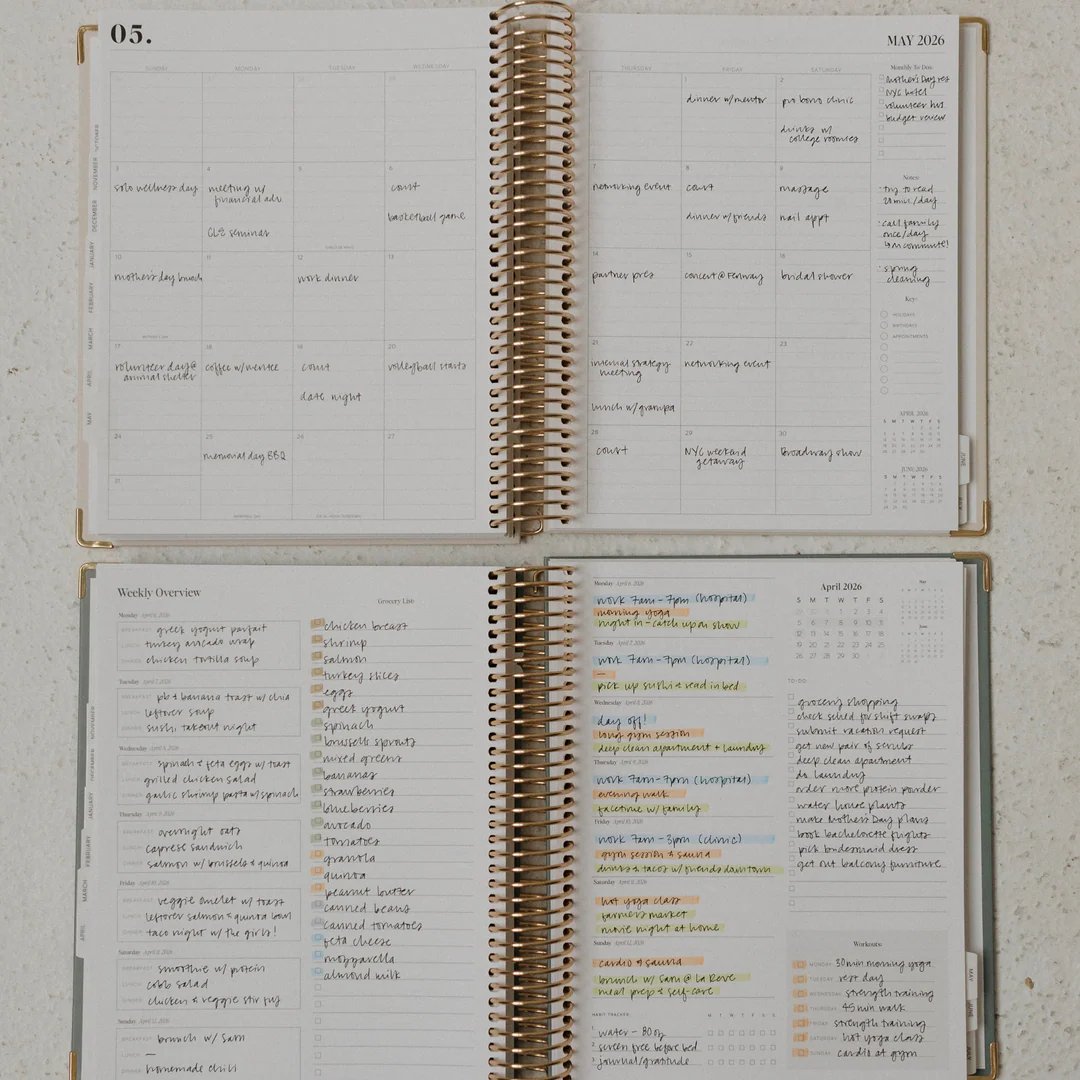 05.
MAY 2026
SUNDAY
MONDAY
TUESDAY
WEDNESDAY
THURSDAY
FRIDAY
SATURDAY
1
dinner w/mentor
2
pro bono clinic
drinks w/
college roomies
3
solo wellness day
4
meeting w/
financial adv.
CLE seminar
5
6
court
basketball game
7
networking event
8
court
dinner w/friends
9
massage
nail appt
10
mother's day brunch
11
12
work dinner
13
14
partner pres
15
concert @ Fenway
16
bridal shower
17
volunteer day @
animal shelter
18
coffee w/mentee
19
court
date night
20
volleyball starts
21
internal strategy
meeting
lunch w/grandpa
22
networking event
23
24
25
memorial day BBQ
26
27
28
court
29
NYC weekend
getaway
30
Broadway show
31
Monthly To Dos:
Mother's Day res
NYC hotel
volunteer hrs
budget review
Notes:
· try to read
20 min./day
· call family
once/day
on commute!
· spring
cleaning
Key:
HOLIDAYS
BIRTHDAYS
APPOINTMENTS
APRIL 2026
S M T W T F S
JUNE 2026
S M T W T F S
SEPTEMBER
NOVEMBER
DECEMBER
JANUARY
FEBRUARY
MARCH
APRIL
MAY
JUNE
Weekly Overview
Monday April 6, 2026
BREAKFAST greek yogurt parfait
LUNCH turkey avocado wrap
DINNER chicken tortilla soup
Tuesday April 7, 2026
BREAKFAST pb & banana toast w/ chia
LUNCH leftover soup
DINNER sushi takeout night
Wednesday April 8, 2026
BREAKFAST spinach & feta eggs w/ toast
LUNCH grilled chicken salad
DINNER garlic shrimp pasta w/ spinach
Thursday April 9, 2026
BREAKFAST overnight oats
LUNCH caprese sandwich
DINNER salmon w/ brussels & quinoa
Friday April 10, 2026
BREAKFAST veggie omelet w/ toast
LUNCH leftover salmon & quinoa bowl
DINNER taco night w/ the girls!
Saturday April 11, 2026
BREAKFAST smoothie w/ protein
LUNCH cobb salad
DINNER chicken & veggie stir fry
Sunday April 12, 2026
BREAKFAST brunch w/ Sam
LUNCH —
DINNER homemade chili
Grocery List:
chicken breast
shrimp
salmon
turkey slices
eggs
greek yogurt
spinach
brussels sprouts
mixed greens
bananas
strawberries
blueberries
avocado
tomatoes
granola
quinoa
peanut butter
canned beans
canned tomatoes
feta cheese
mozzarella
almond milk
Monday April 6, 2026
work 7am-7pm (hospital)
morning yoga
night in - catch up on show
Tuesday April 7, 2026
work 7am-7pm (hospital)
—
pick up sushi & read in bed
Wednesday April 8, 2026
day off!
long gym session
deep clean apartment + laundry
Thursday April 9, 2026
work 7am-7pm (hospital)
evening walk
facetime w/ family
Friday April 10, 2026
work 7am-3pm (clinic)
gym session & sauna
drinks & tacos w/ friends downtown
Saturday April 11, 2026
hot yoga class
farmers market
movie night at home
Sunday April 12, 2026
cardio & sauna
brunch w/ Sam @ La Reve
meal prep & self-care
HABIT TRACKER:
M T W T F S S
water - 80 oz
screen free before bed
journal/gratitude
April 2026
S M T W T F S
1 2 3 4
5 6 7 8 9 10 11
12 13 14 15 16 17 18
19 20 21 22 23 24 25
26 27 28 29 30
May
June
TO-DO
grocery shopping
check sched for shift swaps
submit vacation request
get new pair of scrubs
deep clean apartment
do laundry
order more protein powder
water house plants
make Mother's Day plans
book bachelorette flights
pick bridesmaid dress
get out balcony furniture
Workouts:
MONDAY 30 min morning yoga
TUESDAY rest day
WEDNESDAY strength training
THURSDAY 45 min walk
FRIDAY strength training
SATURDAY hot yoga class
SUNDAY cardio at gym
NOVEMBER
DECEMBER
JANUARY
FEBRUARY
MARCH
APRIL
MAY
JUNE